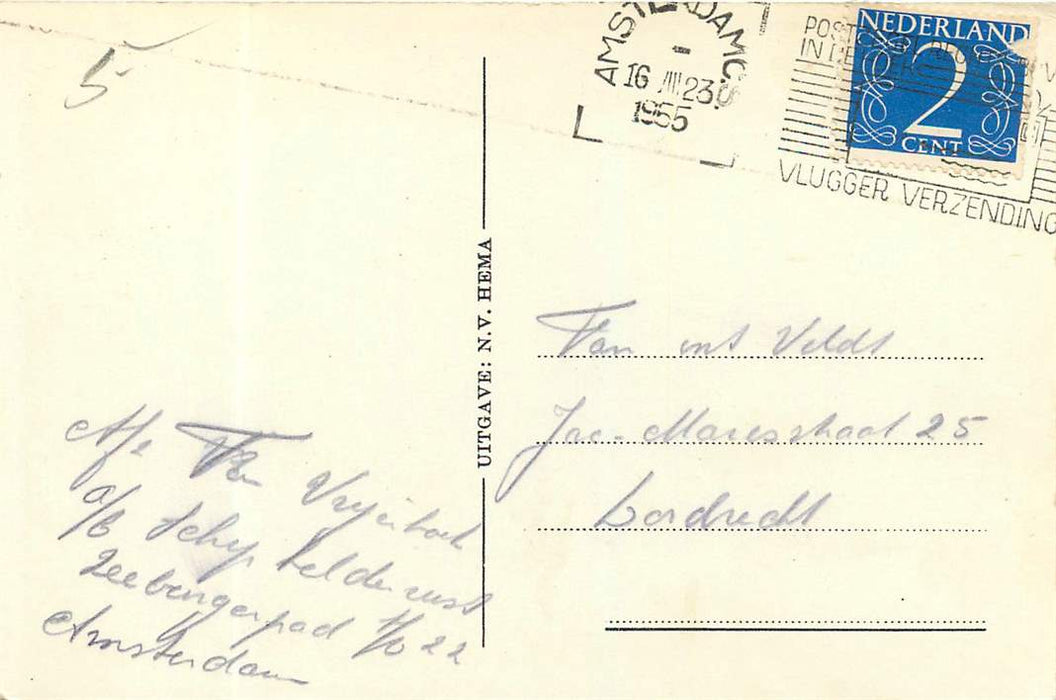 5
AMSTERDAM C.S
16 III 23
1955
POST
IN DE
VLUGGER VERZENDING
NEDERLAND
2
CENT
UITGAVE: N.V. HEMA
Fam int Veldt
Jac. Marisstraat 25
Dordrecht
Afz Fam
a/b Schip Helderrust
Zeeburgerpad t/o 22
Amsterdam